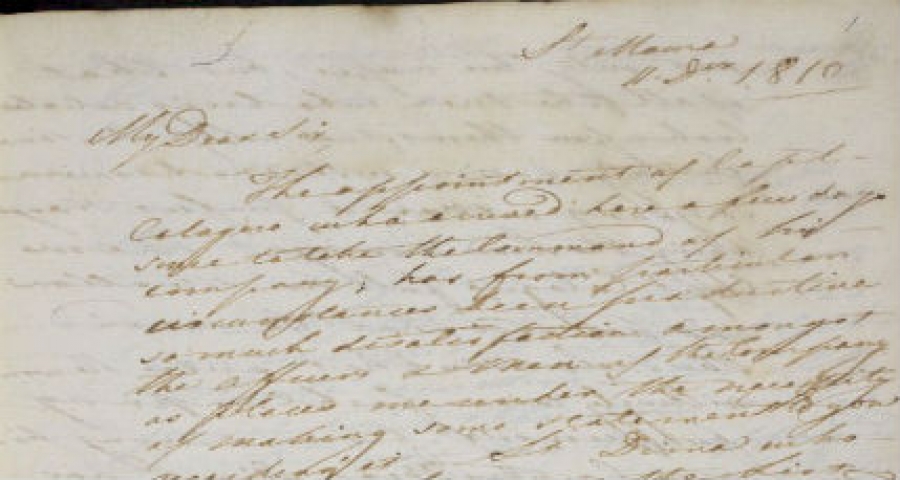 St. Mawes
11 Decr 1810
My Dear Sir
The appointment of Capt
who arrived here a few days
since to take the Command of his
company, has from particular
circumstances been productive
so much dissatisfaction amongst
the officers & men of the Company
as places me under the necessity
of making some statement to you
Lt. who
the